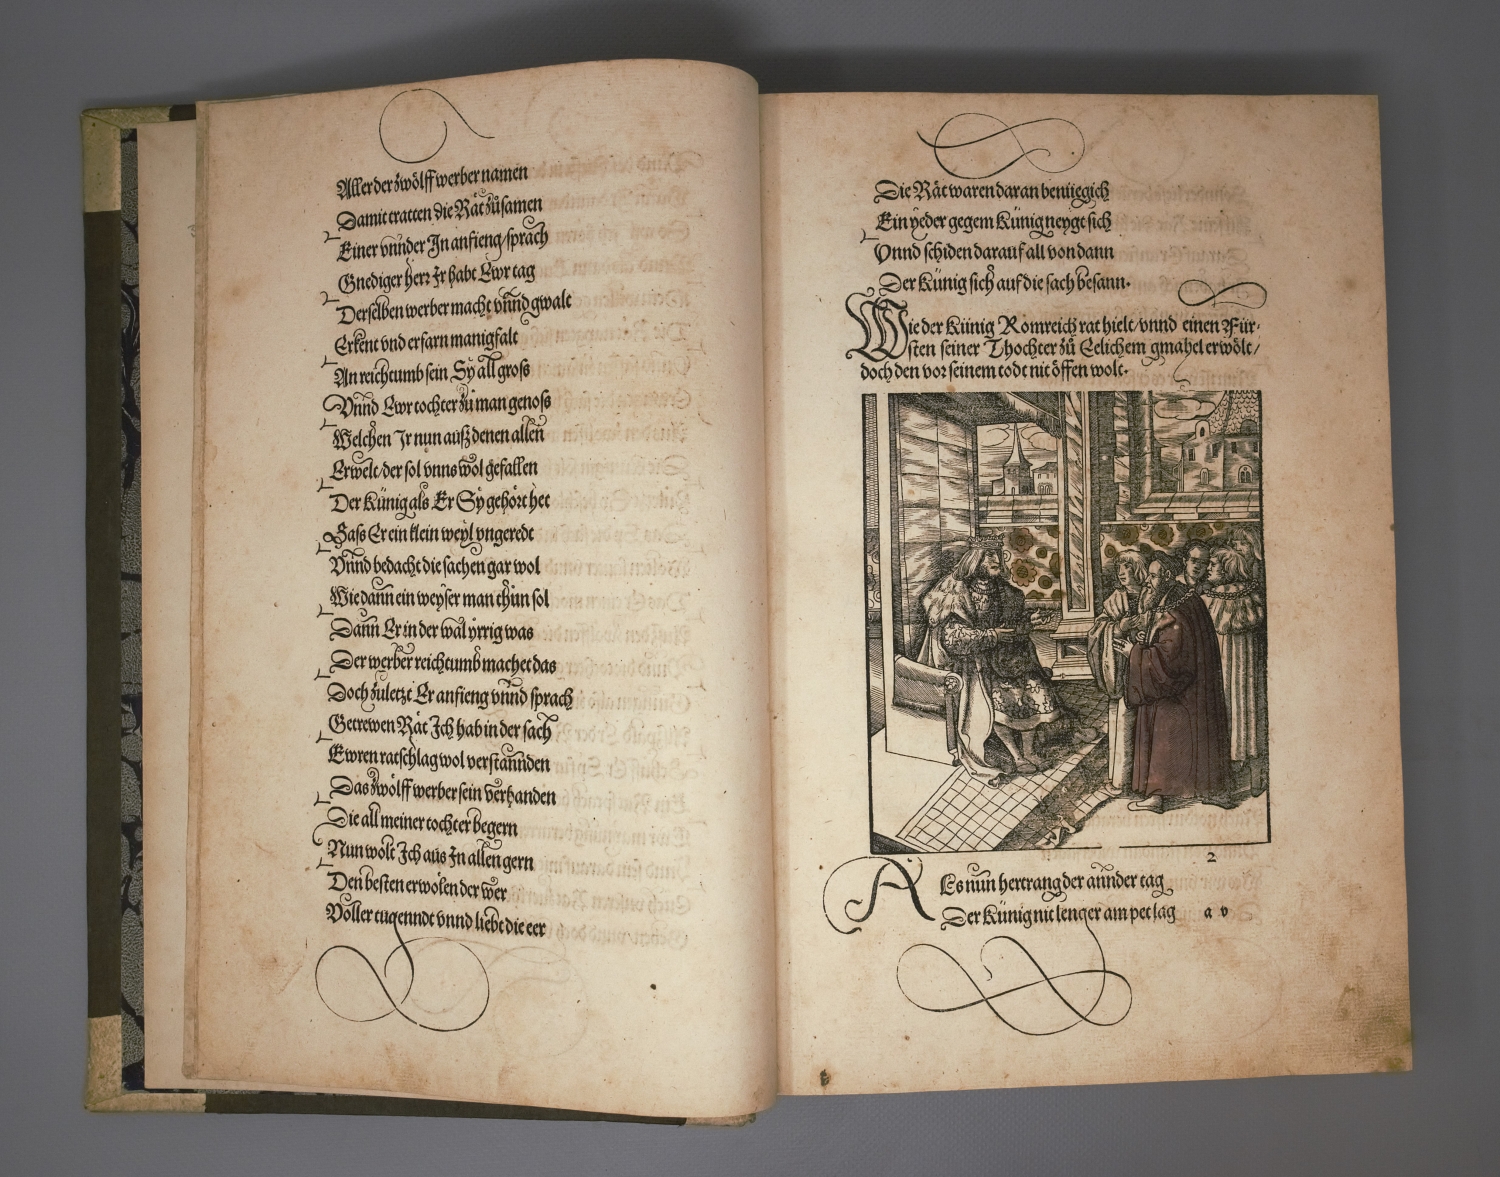 Aller der zwölff werber namen
Damit tratten die Rät zůsamen
Einer vnnder In anfieng/sprach
Gnediger herr Ir habt Ewr tag
Derselben werber macht vnnd gwalt
Erkent vnd erfarn manigfalt
An reichtumb sein Sy all groß
Vnnd Ewr tochter zů man genoß
Welchen Ir nun auß denen allen
Erwelt/der sol vnns wol gefallen
Der Künig als Er Sy gehört het
Sass Er ein klein weyl vngeredt
Vnnd bedacht die sachen gar wol
Wie dann ein weyser man thůn sol
Dann Er in der wal yrrig was
Der werber reichtumb machet das
Doch zuletzt Er anfieng vnnd sprach
Getrewen Rät Ich hab in der sach
Ewren ratschlag wol verstannden
Das zwölff werber sein verhanden
Die all meiner tochter begern
Nun wolt Ich aus In allen gern
Den besten erwölen der wer
Voller tugenndt vnnd liebt die eer
Die Rät waren daran benüegich
Ein yeder gegem Künig neygt sich
Vnnd schiden darauf all von dann
Der Künig sich auf die sach besann.
Wie der Künig Romreich rat hielt/vnnd einen Für-
sten seiner Thochter zů Eelichem gmahel erwölt/
doch den vor seinem todt nit öffen wolt.
2
Als nun hertrang der annder tag
Der Künig nit lenger am pet lag a v